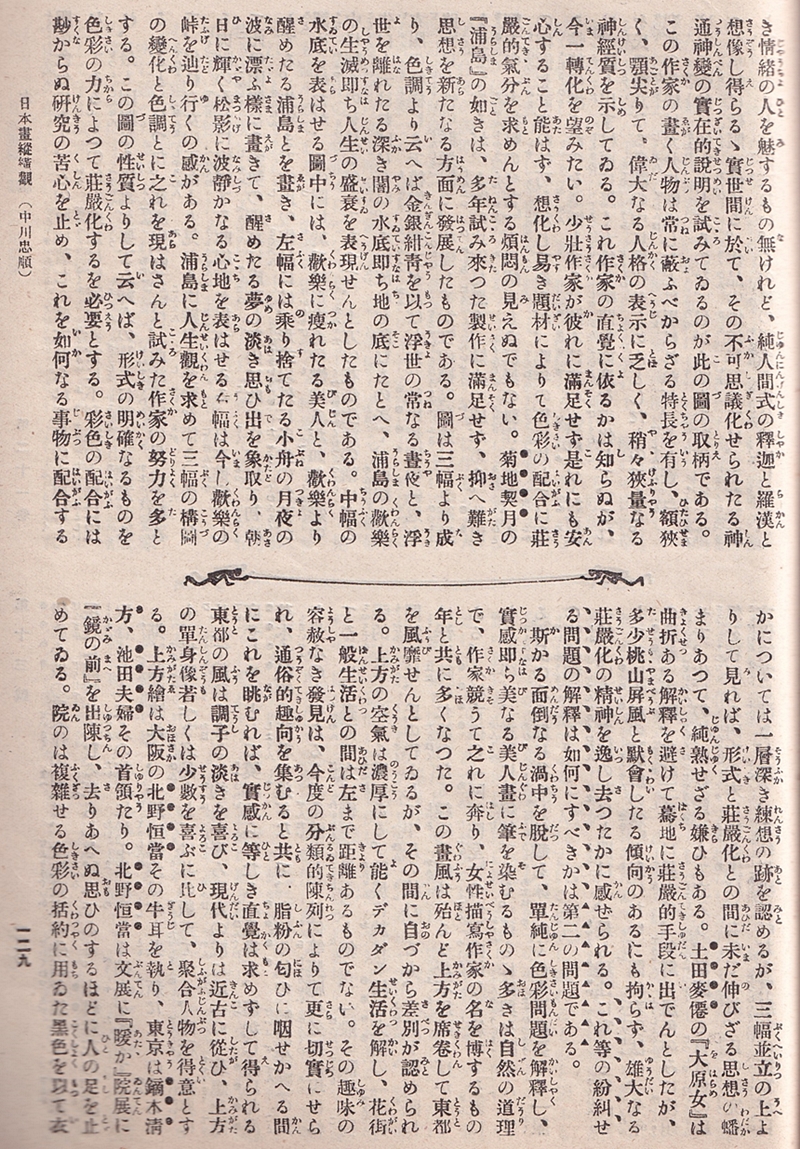 き情緒の人を魅するもの無けれど、純人間式の釋迦と羅漢と
想像し得らるゝ實世間に於て、その不可思議化せられたる神
通神變の實在的說明を試みてゐるのが此の圖の取柄である。
この作家の畫く人物は常に蔽ふべからざる特長を有し、額狹
く、顎尖りて。偉大なる人格の表示に乏しく、稍々狹量なる
神經質を示してゐる。これ作家の直覺に依るかは知らぬが、
今一轉化を望みたい。少壯作家が彼れに滿足せず是れにも安
心すること能はず、想化し易き題材によりて色彩の配合に莊
嚴的氣分を求めんとする煩悶の見えぬでもない。菊地契月の
『浦島』の如きは、多年試み來つた製作に滿足せず、抑へ難き
思想を新たなる方面に發展したものである。圖は三幅より成
り、色調より云へば金銀紺青を以て浮世の常なる晝夜と、浮
世を離れたる深き闇の水底卽ち地の底にたとへ、浦島の歡樂
の生滅卽ち人生の盛衰を表現せんとしたものである。中幅の
水底を表はせる圖中には、歡樂に瘦れたる美人と、歡樂より
醒めたる浦島とを畫き、左幅には乘り捨てたる小舟の月夜の
波に漂ふ樣に畫きて、醒めたる夢の淡き思ひ出を象取り、朝
日に輝く松影に波靜かなる心地を表はせる右幅は今し歡樂の
峠を辿り行くの感がある。浦島に人生觀を求めて三幅の構圖
の變化と色調とに之れを現はさんと試みた作家の努力を多と
する。この圖の性質よりして云へば、形式の明確なるものを
色彩の力によつて莊嚴化するを必要とする。彩色の配合には
尠からぬ硏究の苦心を止め、これを如何なる事物に配合する
日本畫縱橫觀 （中川忠順）
かについては一層深き練想の跡を認めるが、三幅並立の上よ
りして見れば、形式と莊嚴化との間に未だ伸びざる思想の蟠
まりあつて、純熟せざる嫌ひもある。土田麥僊の『大原女』は
曲折ある解釋を避けて驀地に莊嚴的手段に出でんとしたが、
多少桃山屏風と默會したる傾向のあるにも拘らず、雄大なる
莊嚴化の精神を逸し去つたかに感ぜられる。これ等の紛糾せ
る問題の解釋は如何にすべきかは第二の問題である。
斯かる面倒なる渦中を脫して、單純に色彩問題を解釋し、
實感卽ち美なる美人畫に筆を染むるものゝ多きは自然の道理
で、作家競うて之れに奔り、女性描寫作家の名を博するもの
年と共に多くなつた。この畫風は殆んど上方を席卷して東都
を風靡せんとしてゐるが、その間に自づから差別が認められ
る。上方の空氣は濃厚にして能くデカダン生活を解し、花街
と一般生活との間は左まで距離あるものでない。その趣味の
容赦なき發見は、今度の分類的陳列によりて更に切實にせら
れ、通俗的趣向を集むると共に、脂粉の匂ひに咽せかへる間
にこれを眺むれば、實感に等しき直覺は求めずして得られる
東都の風は調子の淡きを喜び、現代よりは近古に從ひ、上方
の單身像若しくは少數を喜ぶに比して、聚合人物を得意とす
る。上方繪は大阪の北野恒富その牛耳を執り、東京は鏑木淸
方、池田夫婦その首領たり。北野恒富は文展に『暖か』院展に
『鏡の前』を出陳し、去りあへぬ思ひのするほどに人の足を止
めてゐる。院のは複雜せる色彩の括約に用ゐた黑色を以て衣
一二九